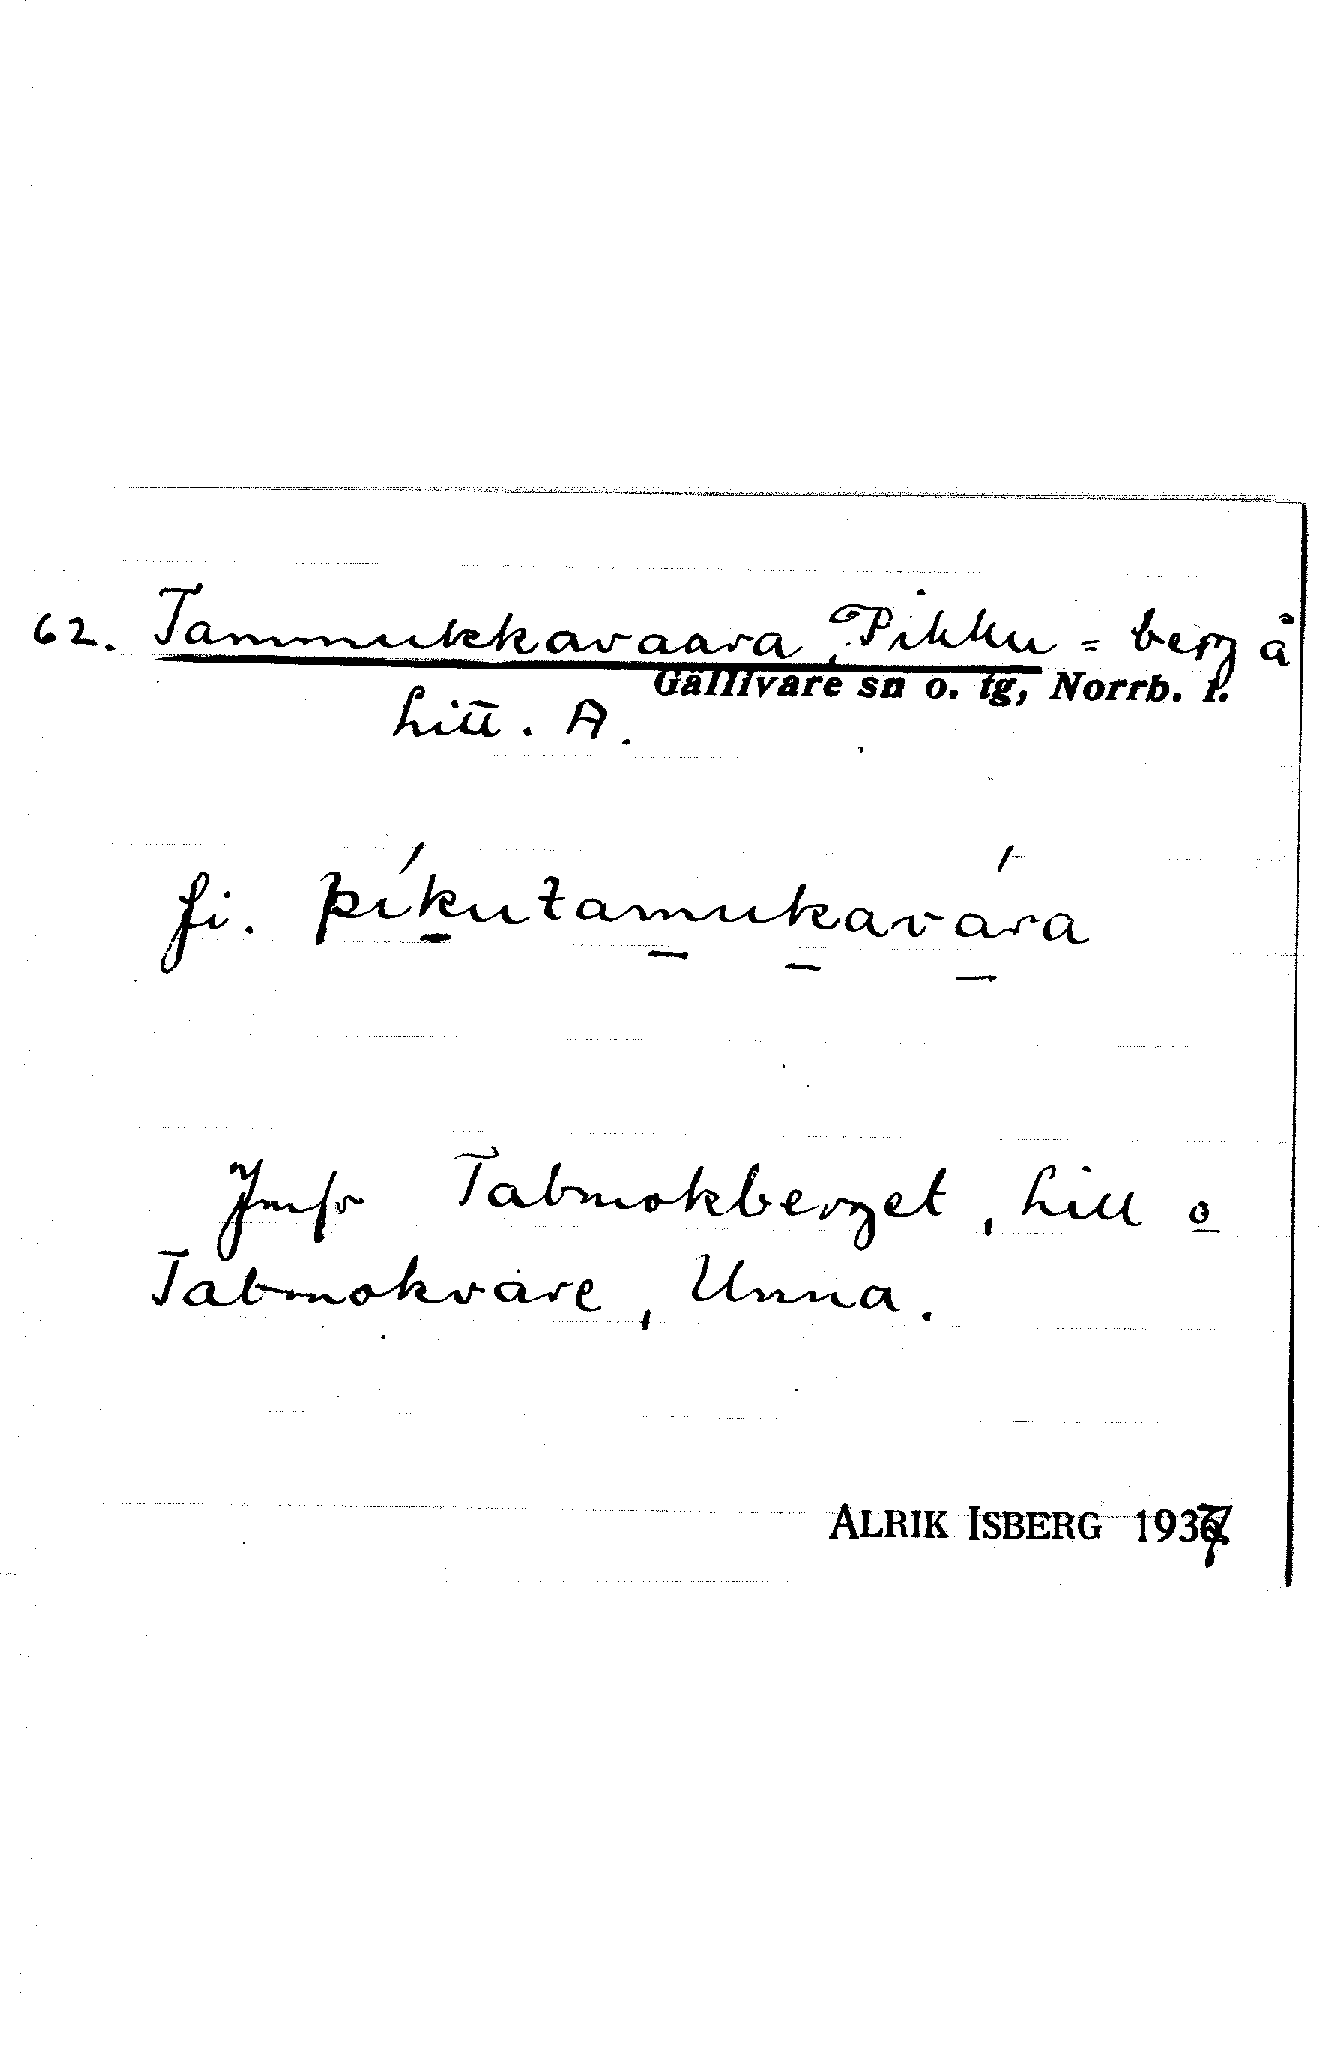 62. Tammukkavaara, Pikku = berg å
Gällivare sn o. tg, Norrb. l.
Litt. A.
fi. píkutamukavára
Jmfr Tabmokberget, Lill o
Tabmokvare, Unna.
ALRIK ISBERG 1937